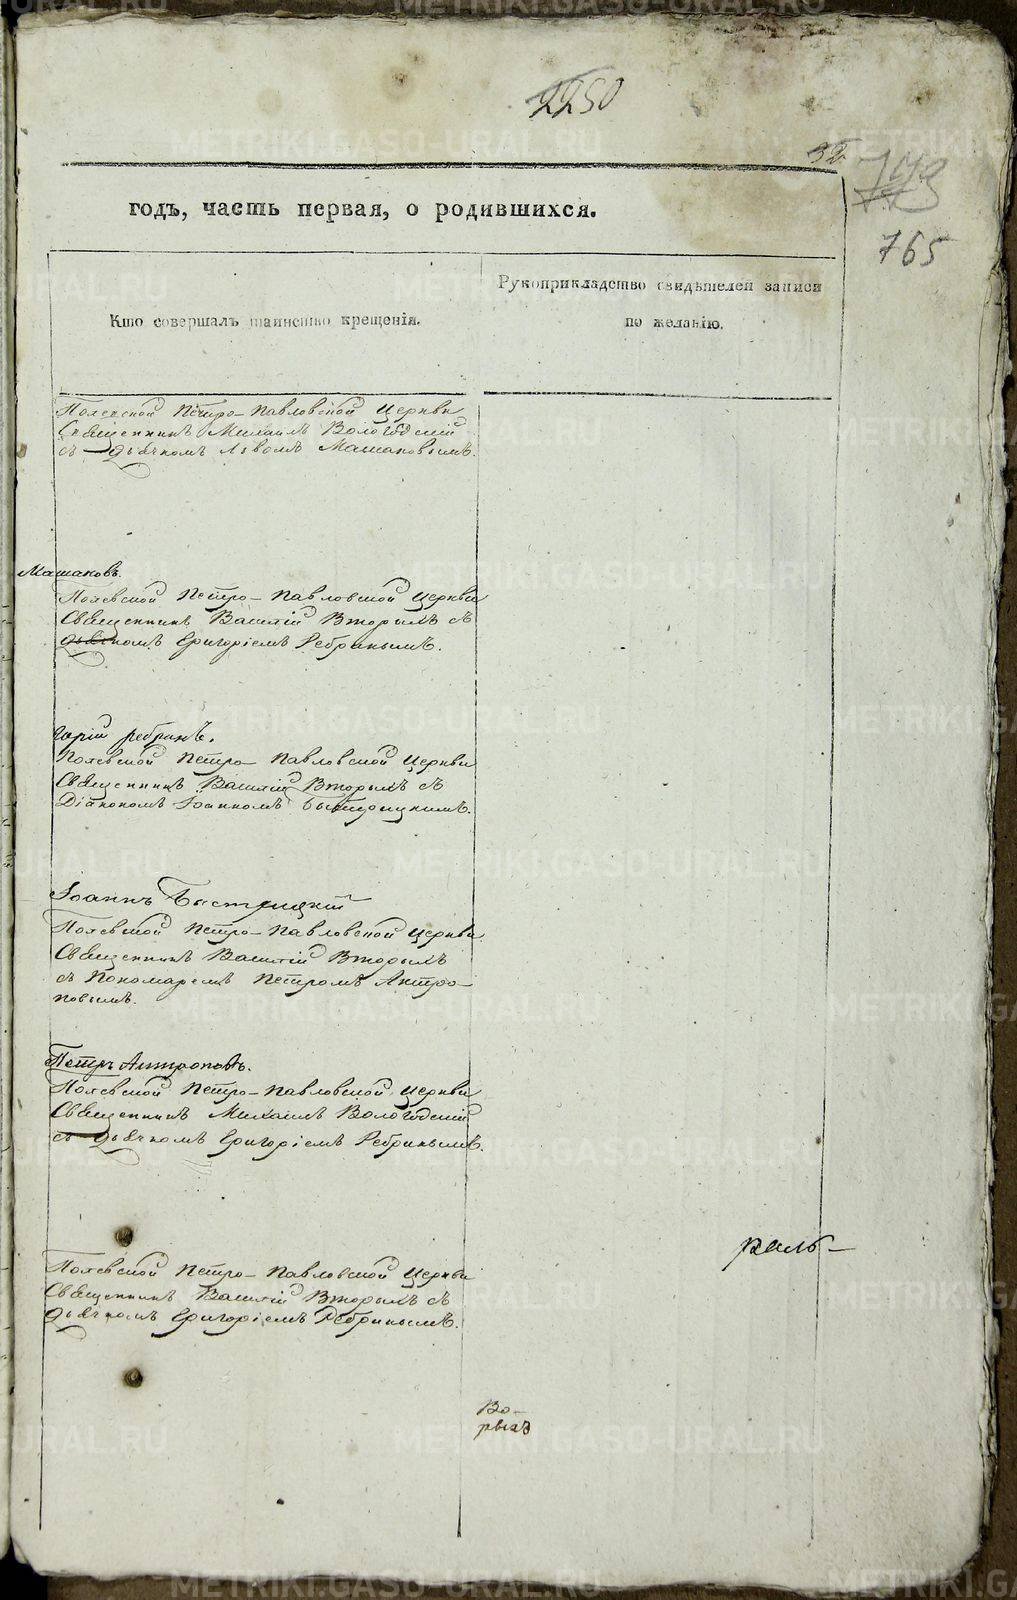 2250
32
743
765
годъ, часть первая, о родившихся.
Кто совершалъ таинство крещенія.
Рукоприкладство свидѣтелей записи
по желанію.
Полевской Петро-Павловской Церкви
Священникъ Михаилъ Вологодский
съ дьячкомъ Львомъ Машановымъ.
Машановъ.
Полевской Петро-Павловской Церкви
Священникъ Василій Вторыхъ съ
дьячкомъ Григоріемъ Ребринымъ.
горій Ребринъ.
Полевской Петро-Павловской Церкви
Священникъ Василій Вторыхъ съ
Діакономъ Іоанномъ Быстрицкимъ.
Іоаннъ Быстрицкій
Полевской Петро-Павловской Церкви
Священникъ Василій Вторыхъ
съ Пономаремъ Петромъ Антро-
повымъ.
Петръ Антроповъ.
Полевской Петро-Павловской Церкви
Священникъ Михаилъ Вологодскій
съ дьячкомъ Григоріемъ Ребринымъ.
Полевской Петро-Павловской Церкви
Священникъ Василій Вторыхъ съ
дьячкомъ Григоріемъ Ребринымъ.
METRIKI.GASO-URAL.RU